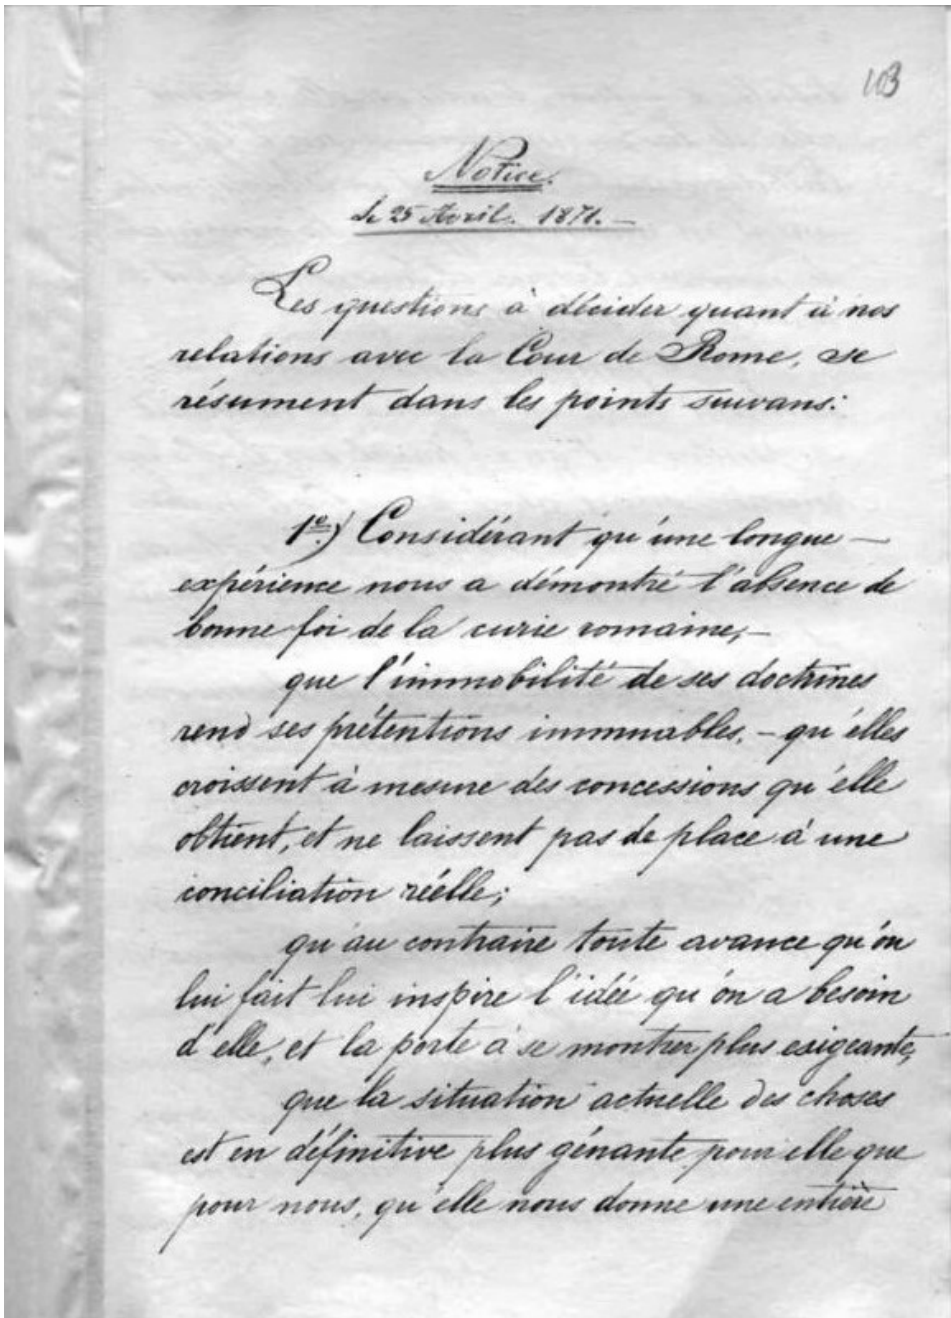 103
Notice.
le 25 Avril. 1871. —
Les questions à décider quant à nos
relations avec la Cour de Rome, se
résument dans les points suivans:
1º.) Considérant qu'une longue —
expérience nous a démontré l'absence de
bonne foi de la curie romaine, —
que l'immobilité de ses doctrines
rend ses prétentions immuables, — qu'elles
croissent à mesure des concessions qu'elle
obtient, et ne laissent pas de place à une
conciliation réelle;
qu'au contraire toute avance qu'on
lui fait lui inspire l'idée qu'on a besoin
d'elle, et la porte à se montrer plus exigeante,
que la situation actuelle des choses
est en définitive plus gênante pour elle que
pour nous, qu'elle nous donne une entière